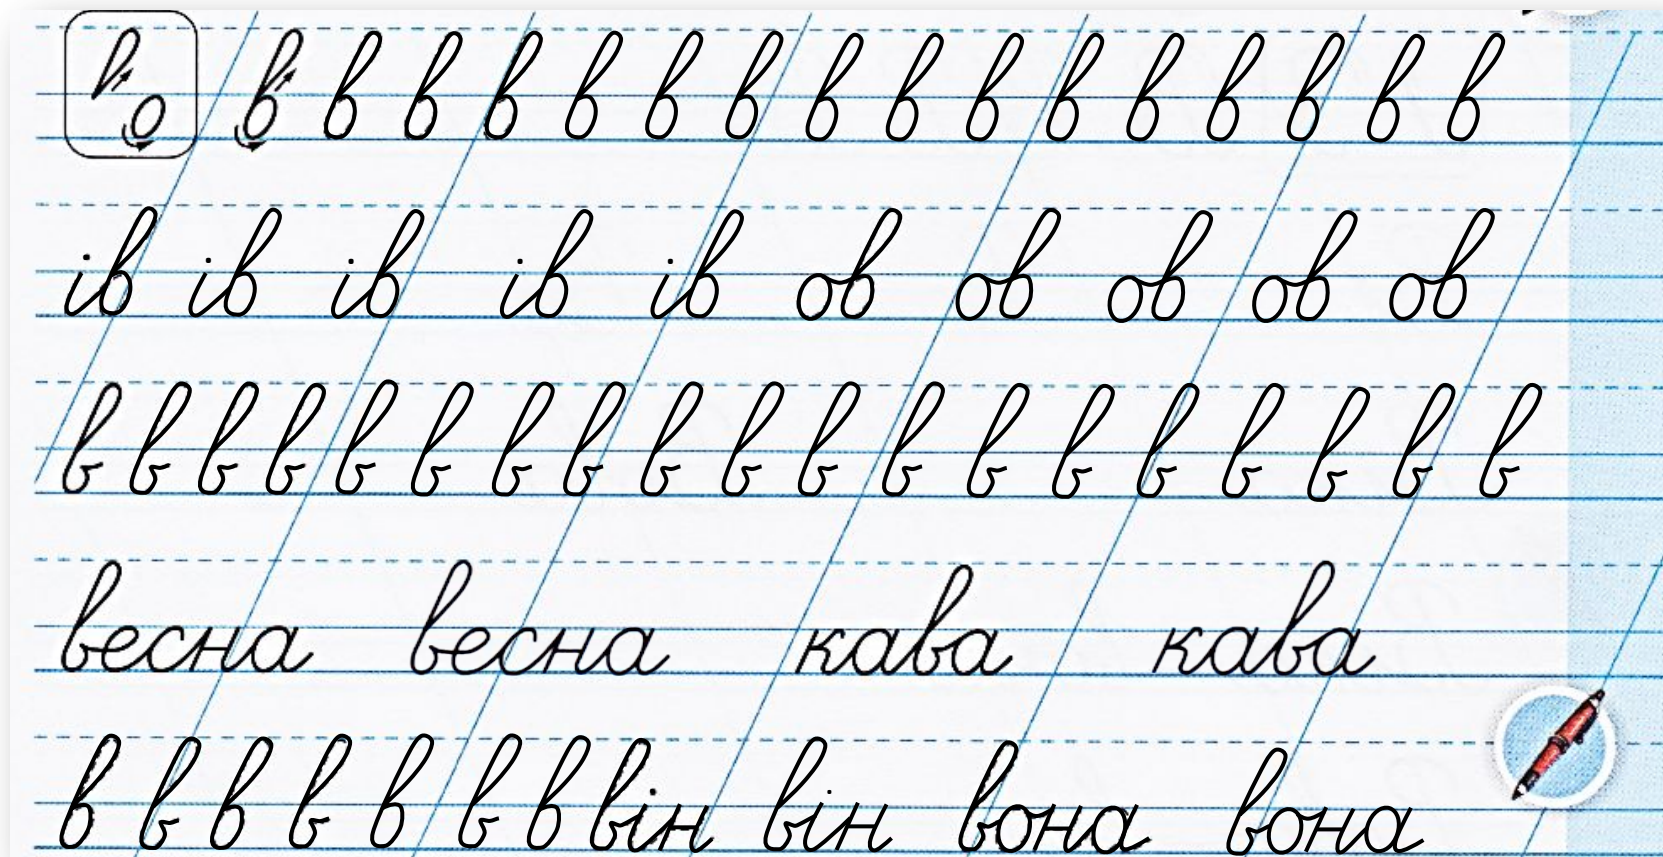 в в в в в в в в в в в в в в в в
ів ів ів ів ів ов ов ов ов ов
в в в в в в в в в в в в в в в в в в в
весна весна кава кава
в в в в в в в він він вона вона